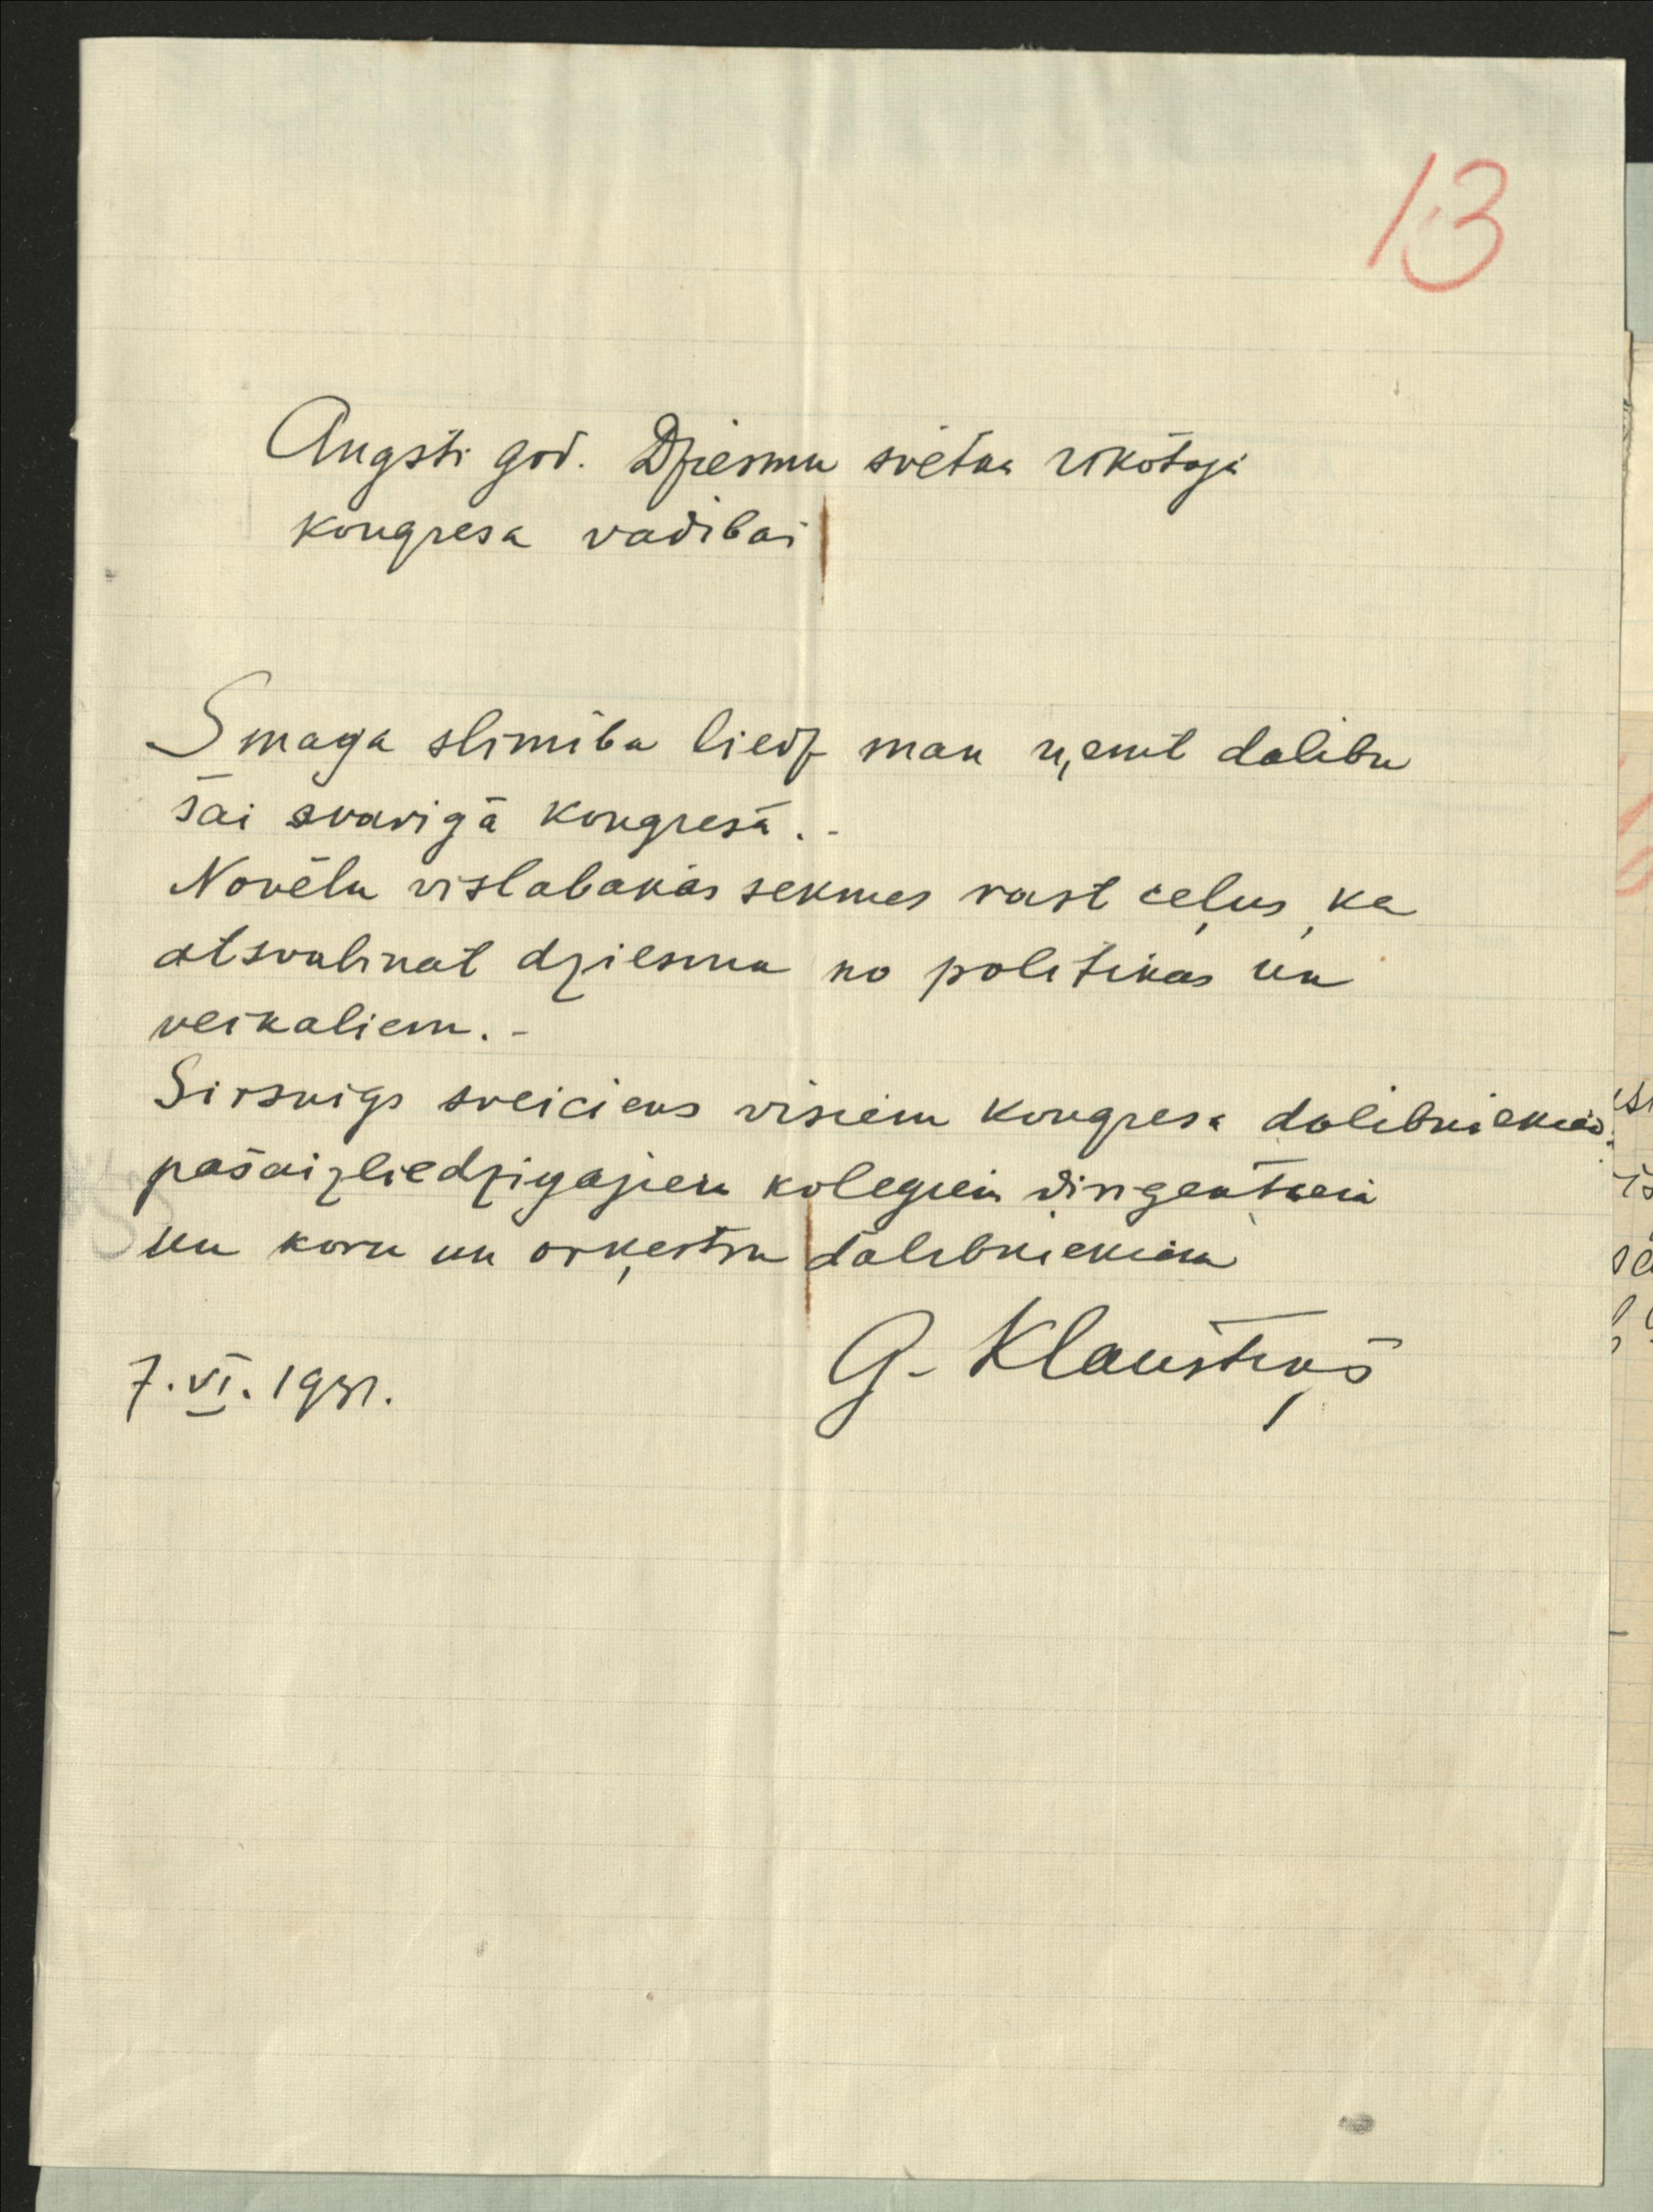 13
Augsti god. Dziesmu svētku rīkotāja
kongresa vadībai
Smaga slimība liedz man ņemt dalību
šai svarīgā kongresā. -
Novēlu vislabakās sekmes rast ceļus, ka
atsvabinat dziesmu no politikas un
veikaliem. -
Sirsnigs sveiciens visiem kongresa dalibniekiem
pašaizliedzigajiem kolegiem diriģentiem
un koru un orķestru dalibniekiem
G. Klaustiņš
7. VI. 1931.